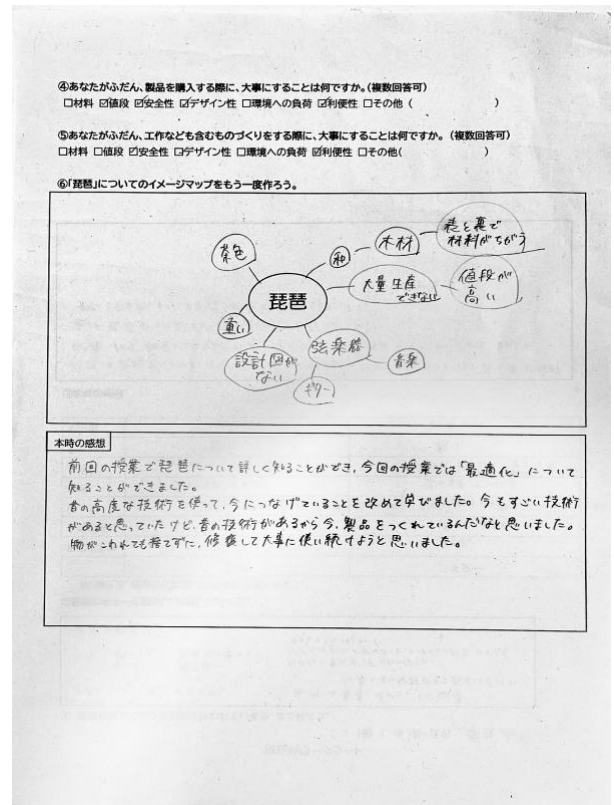 ④あなたがふだん、製品を購入する際に、大事にすることは何ですか。(複数回答可)
□材料 ☑値段 ☑安全性 ☑デザイン性 □環境への負荷 ☑利便性 □その他 ( )
⑤あなたがふだん、工作なども含むものづくりをする際に、大事にすることは何ですか。(複数回答可)
□材料 □値段 ☑安全性 ☑デザイン性 □環境への負荷 ☑利便性 □その他( )
⑥「琵琶」についてのイメージマップをもう一度作ろう。
茶色
和
木材
表と裏で
材料がちがう
琵琶
大量生産
できない
値段が
高い
重い
設計図が
ない
弦楽器
音楽
ギター
本時の感想
前回の授業で琵琶について詳しく知ることができ、今回の授業では「最適化」について
知ることができました。
昔の高度な技術を使って、今につなげていることを改めて学びました。今もすごい技術
があると思っていたけど、昔の技術があるから今、製品をつくれているんだなと思いました。
物がこわれても捨てずに、修復して大事に使い続けようと思いました。